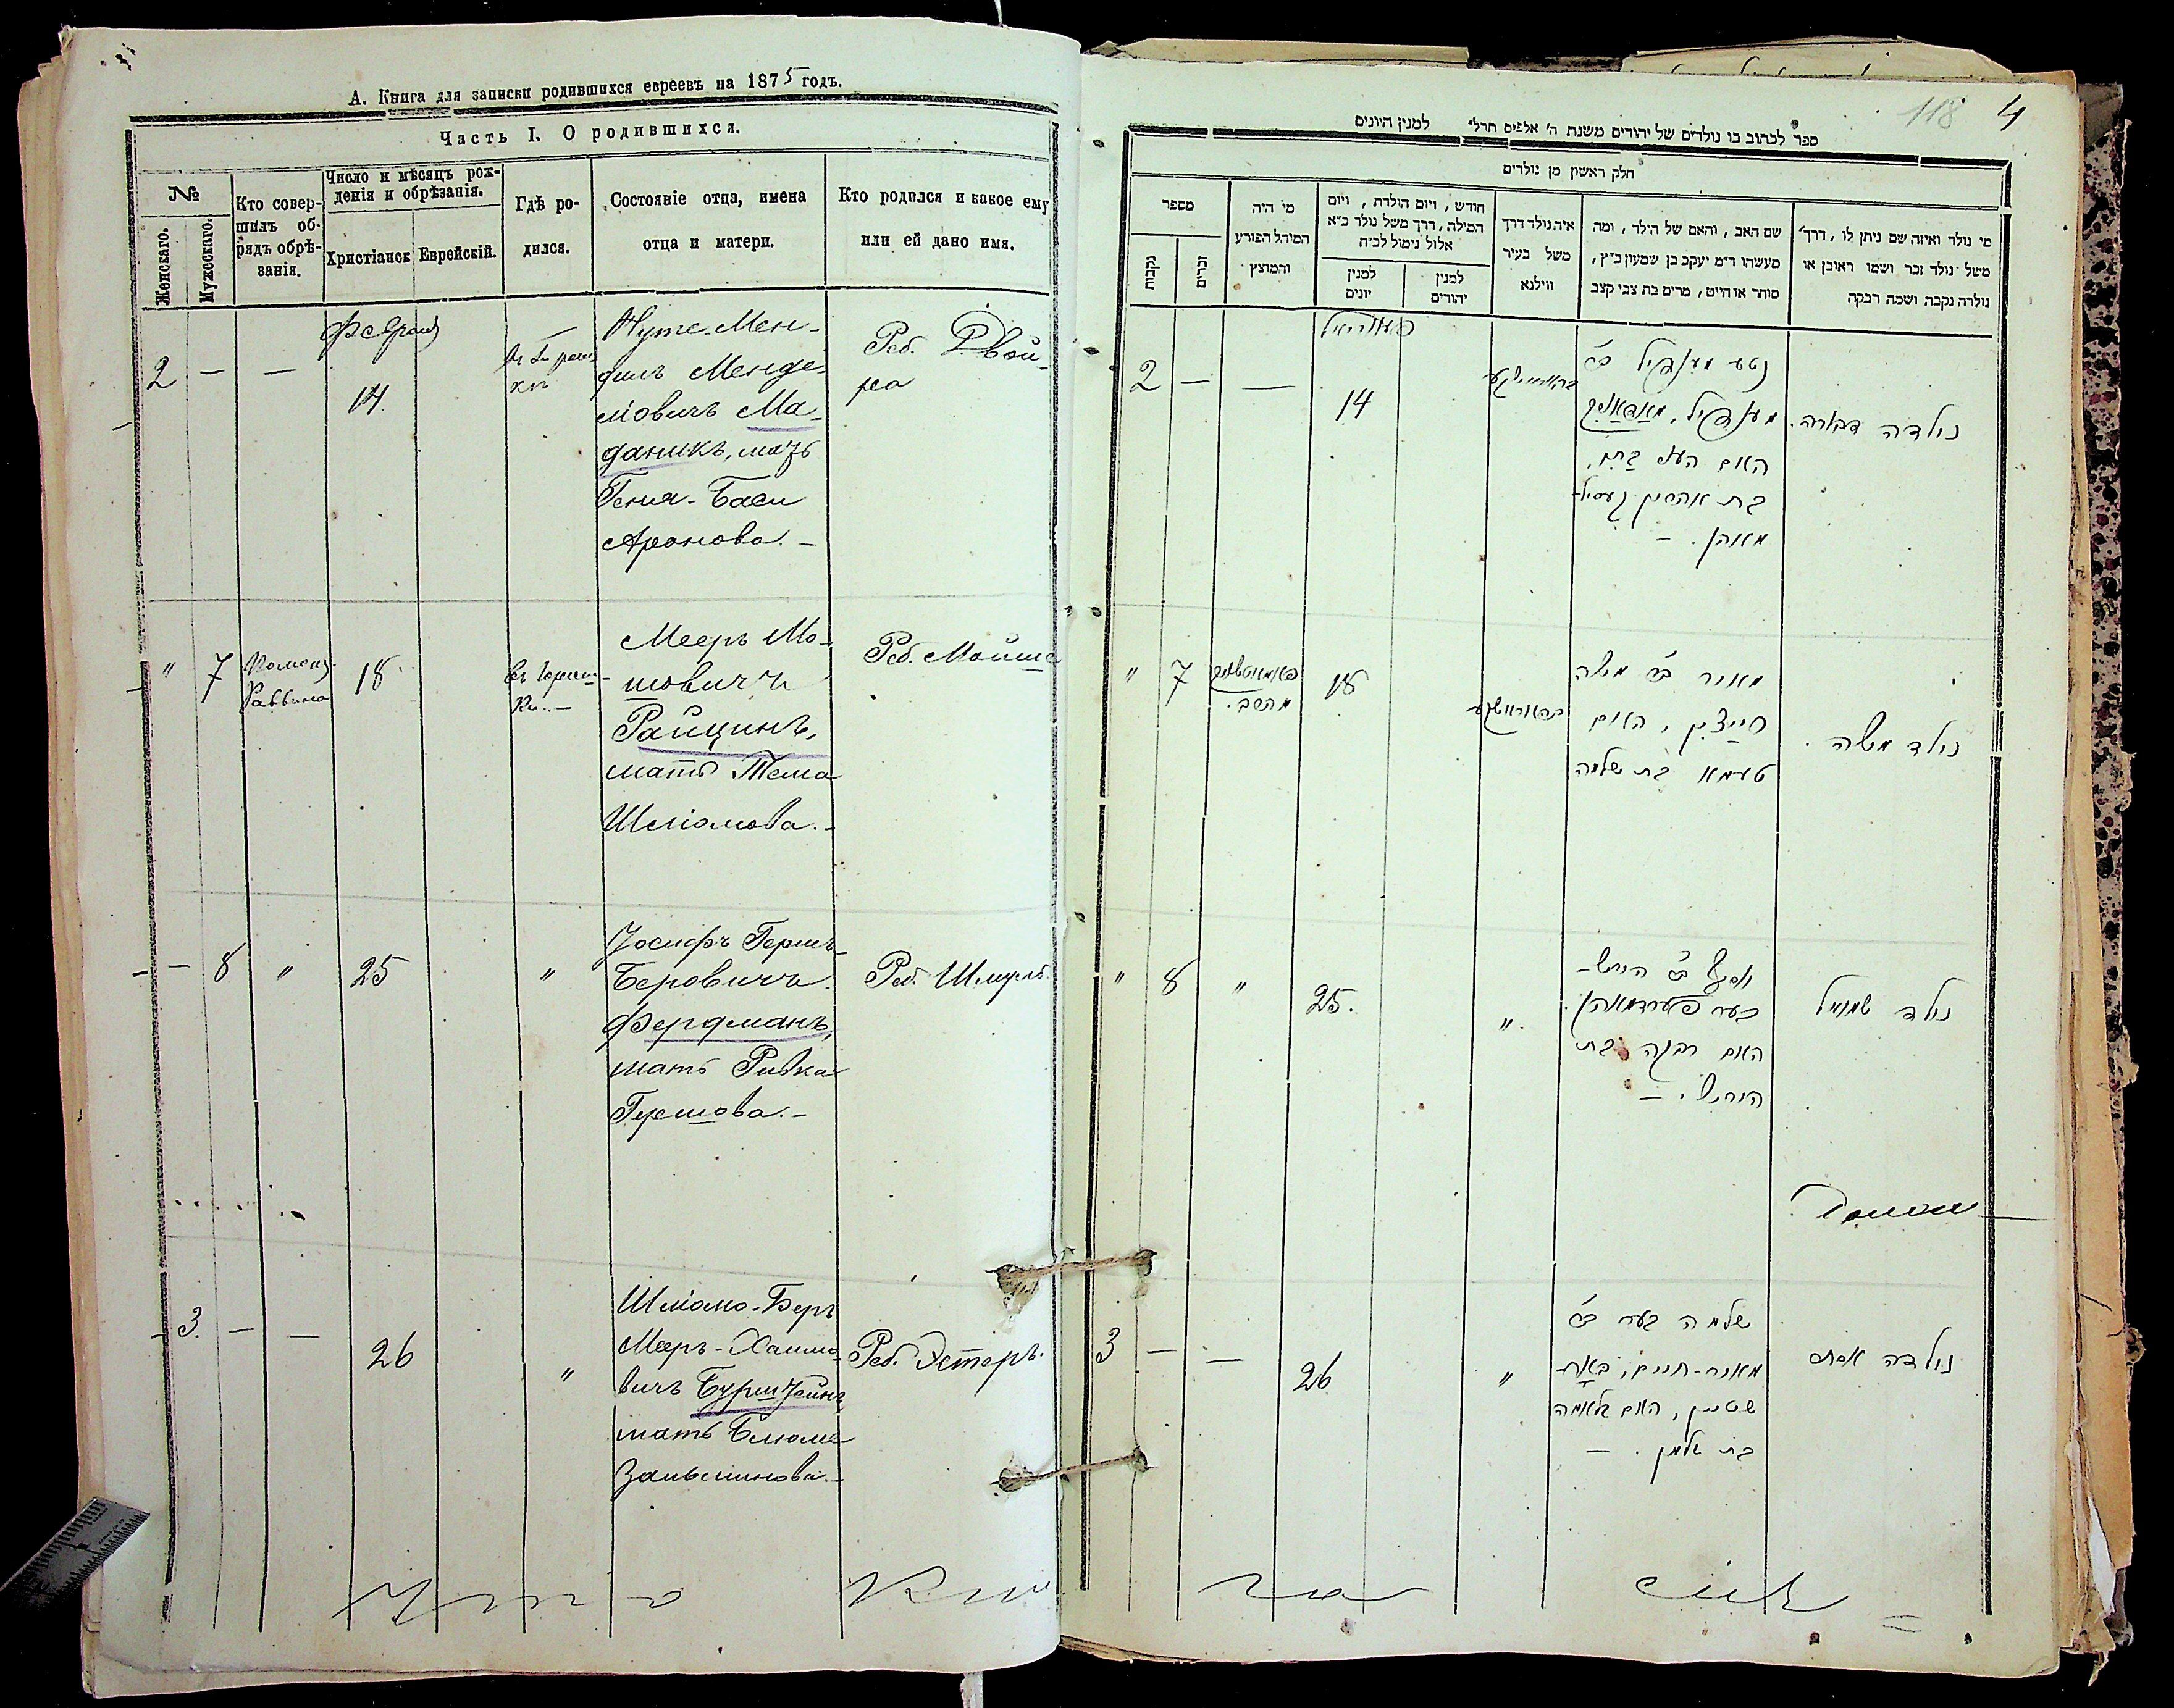 А. Книга для записки родившихся евреевъ на 1875 годъ.
Часть I. О родившихся.
№
Женскаго.
Мужескаго.
Кто совер-
шилъ об-
рядъ обрѣ-
занія.
Число и мѣсяцъ рож-
денія и обрѣзанія.
Христіанск
Еврейскій.
Гдѣ ро-
дился.
Состояніе отца, имена
отца и матери.
Кто родился и какое ему
или ей дано имя.
2 — —
14.
Нуте-Мен-
диль Менде-
ліовичъ Ма-
даникъ, мать
Геня-Баси
Аронова. —
Реб. Двой-
ра
" 7
Раввина
18
Мееръ Мо-
шовичъ
Райцинъ,
мать Тема
Шліомова. —
Реб. Мойше
— 8 " 25 "
Іосифъ Герш-
Беровичъ
Фердманъ,
мать Ривка
Гершова. —
Реб. Шмуель.
3. — — 26 "
Шліомо-Беръ
Мееръ-Хаимо-
вичъ Бурштейнъ
мать Блюме
Зальминова. —
Реб. Эстеръ.
118 4
ספר לכתוב בו נולדים של יהודים משנת ה' אלפים תרל" למנין היונים
חלק ראשון מן נולדים
מספר
נקבות
זכרים
מי היה
המוהל הפורע
והמוצץ
חודש, ויום הולדת, ויום
המילה, דרך משל נולד כ"א
אלול נימול לכ"ח
למנין
יונים
למנין
יהודים
איה נולד דרך
משל בעיר
ווילנא
שם האב, והאם של הילד, ומה
מעשהו ד"מ יעקב בן שמעון כ"ץ,
סוחר או חייט, מרים בת צבי קצב
מי נולד ואיזה שם ניתן לו, דרך
משל נולד זכר ושמו ראובן או
נולדה נקבה ושמה רבקה
2 — — 14
נטע מענדיל ב"ר
מענדיל, מאדאניק
האם
בת אהרן
נולדה דבורה.
" 7
18
מאיר ב"ר משה
רייצין, האם
טעמא בת שלמה
נולד משה.
" 8 " 25. "
יוסף ב"ר הירש-
בער פערדמאן
האם רבקה בת
הירש. —
נולד שמואל
3 — — 26 "
שלמה בער ב"ר
מאיר-חיים, בורש
שטיין, האם בלומה
בת זלמן. —
נולדה אסתר